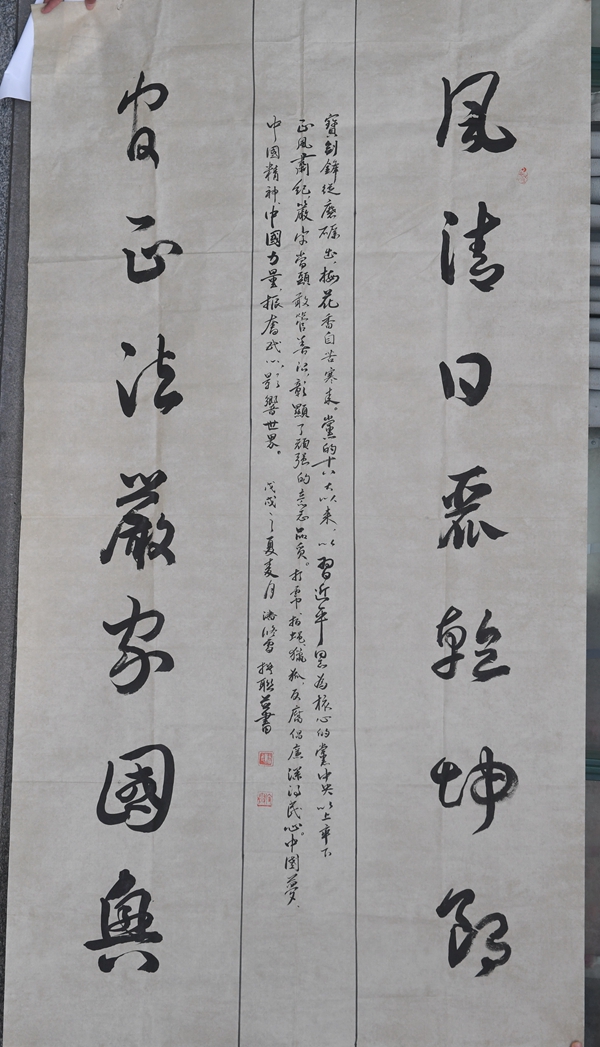 風清日麗乾坤朗
寶劍鋒從磨礪出，梅花香自苦寒來。黨的十八大以来，以習近平同志為核心的黨中央以上率下
正風肅紀，嚴字當頭，敢管善治，彰顯了頑強的意志品質。打虎拍蠅獵狐，反腐倡廉深得民心。中國夢，
中國精神，中國力量，振奮 影響世界。戊戌之夏麦月 撰联并書
官正法嚴家國興